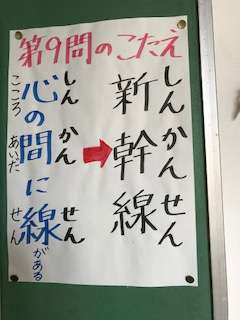 第9問のこたえ
しんかんせん
新幹線
しんかんせん
心の間に線がある
こころ あいだ せん